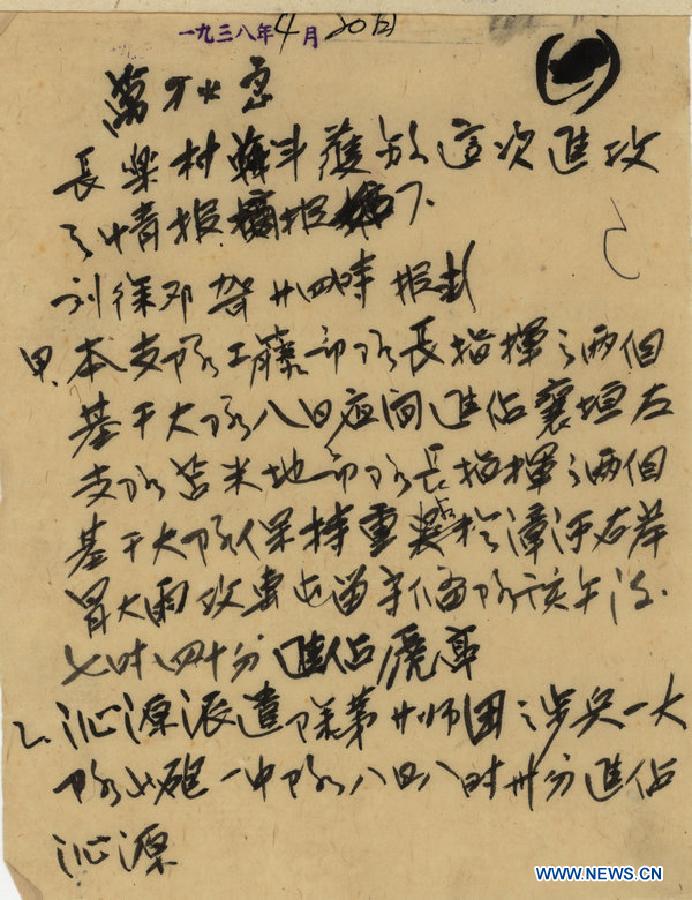 一九三八年4月20日
萬万火急
長樂村戰斗獲敌這次進攻
之情报摘报如下.
刘徐邓 廿四時 报彭
甲.本支隊工藤部隊長指揮之兩個
基干大隊八日夜间進佔襄垣左
支隊苫米地部隊長指揮之兩個
基干大隊保持重點於漳河右岸
冒大雨攻擊屯留 隊 午后
七时四十分進佔虒亭
乙.沁源派遣隊第廿师团之步兵一大
隊山砲一中隊八日八时卅分進佔
沁源
WWW.NEWS.CN